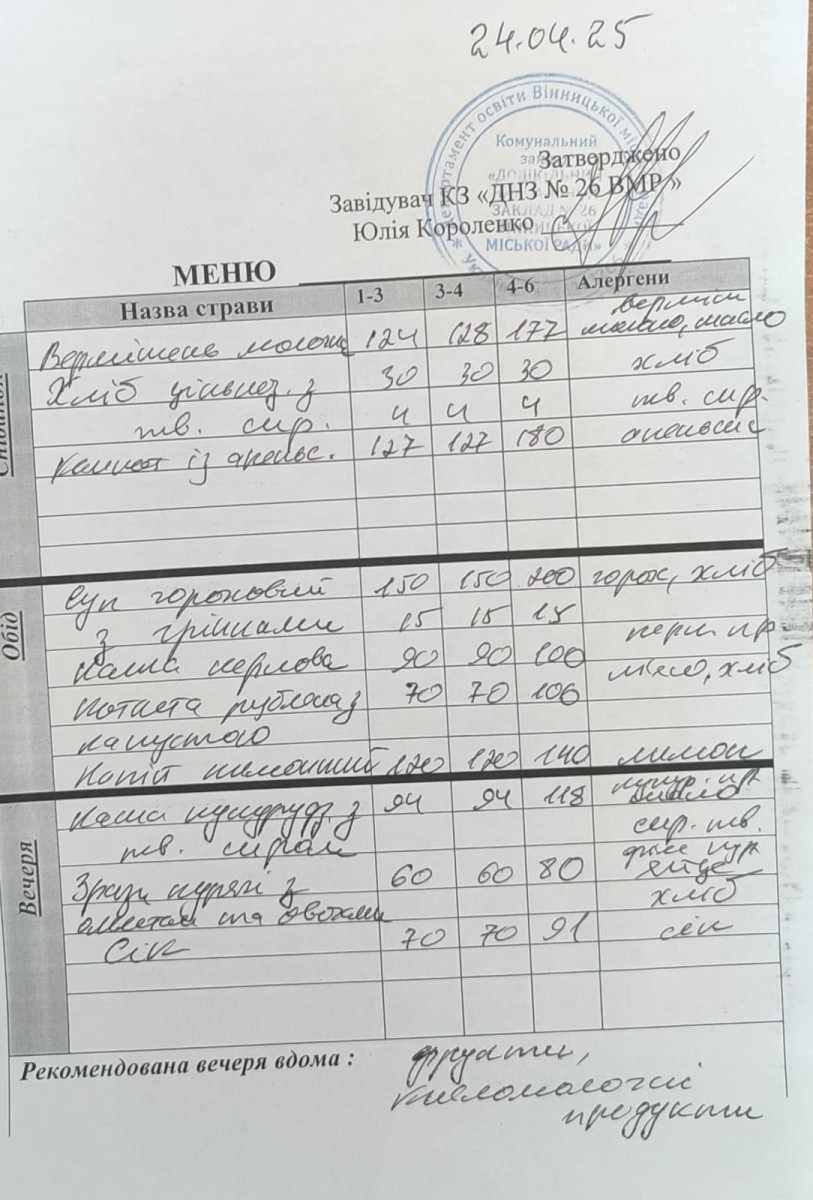 24.04.25
Департамент освіти Вінницької міс
Комунальний
Затверджено
Завідувач КЗ «ДНЗ № 26 ВМР »
ЗАКЛАД № 26
Юлія Короленко
МІСЬКОЇ РАДИ»
МЕНЮ
Назва страви 1-3 3-4 4-6 Алергени
Сніданок
верміш
Вермішель молочн 124 128 177 молоко, масло
Хліб цільнoз. з 30 30 30 хліб
тв. сир. 4 4 4 тв. сир.
Компот із апельс. 127 127 180 апельсин
Обід
Суп гороховий 150 150 200 горох, хліб
з грінками 15 15 15
Каша перлова 90 90 100 перл. кр.
Котлета рублена з 70 70 106 м'ясо, хліб
капустою
Напій лимонний 120 120 140 лимон
Вечеря
Каша кукурудз. з 94 94 118 кукур. кр
тв. сиром сир. тв.
філе кур
Зрази курячі з 60 60 80 яйце
омлетом та овочами хліб
Сік 70 70 91 сік
Рекомендована вечеря вдома : фрукти,
кисломолочні
продукти